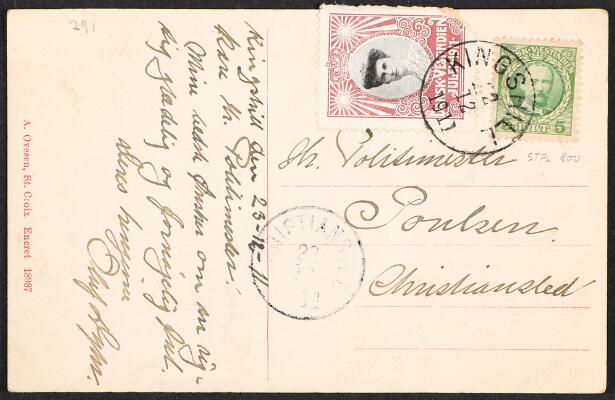 791
Kingshill den 23-12-11
kære Hr. Politimester!
Mine
Ønsker om en rig-
tig glædelig og fornøjelig Jul.
Deres hengivne
A. Ovesen, St. Croix Eneret 18987
DANSK-VESTINDIEN
JUL
KINGSHILL
22
12
1911
DANSK-VESTINDIEN
5 BIT
STPL. 800
Hr. Politimester
Poulsen.
Christiansted
CHRISTIANSTED
23
12
11